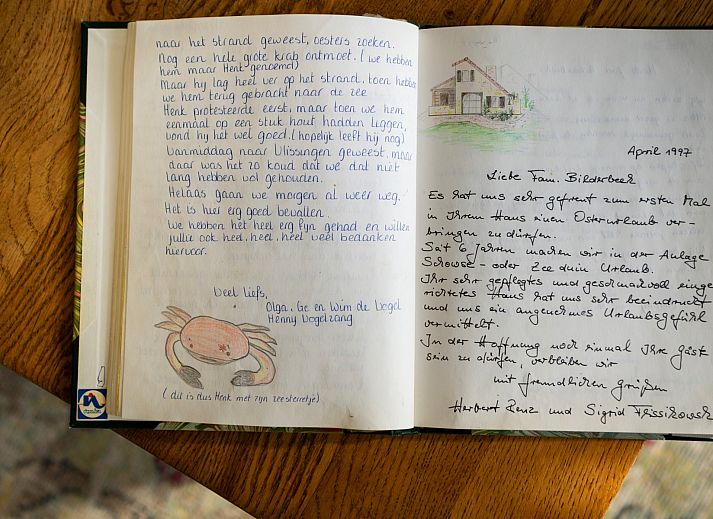 naar het strand geweest, oesters zoeken.
Nog een hele grote krab ontmoet. (we hebben
hem maar Henk genoemd)
Maar hy lag heel ver op het strand, toen hebben
we hem terug gebracht naar de zee
Henk protesteerde eerst, maar toen we hem
eenmaal op een stuk hout hadden liggen,
vond hy het wel goed. (hopelijk leeft hij nog)
Vanmiddag naar Vlissingen geweest, maar
daar was het zo koud dat we dat niet
lang hebben vol gehouden.
Helaas gaan we morgen al weer weg.
Het is hier erg goed bevallen.
We hebben het heel erg fyn gehad en willen
jullie ook heel, heel, heel veel bedanken
hiervoor.
Veel liefs,
Olga, Ge en Wim de Vogel
Henny Vogelzang
(dit is dus Henk met zijn zeesterretje)
April 1997
Liebe Fam. Bilderbeek
Es hat uns sehr gefreut zum ersten Mal
in Ihrem Haus einen Osterurlaub ver-
bringen zu dürfen.
Seit 6 Jahren machen wir in der Anlage
Schouse - oder Zee duin Urlaub.
Ihr sehr gepflegtes und geschmackvoll einge
richtetes Haus hat uns sehr beeindruckt
und uns ein angenehmes Urlaubsgefühl
vermittelt.
In der Hoffnung noch einmal Ihre Gäste
sein zu dürfen, verbleiben wir
mit freundlichen Grüßen
Herbert Renz und Sigrid